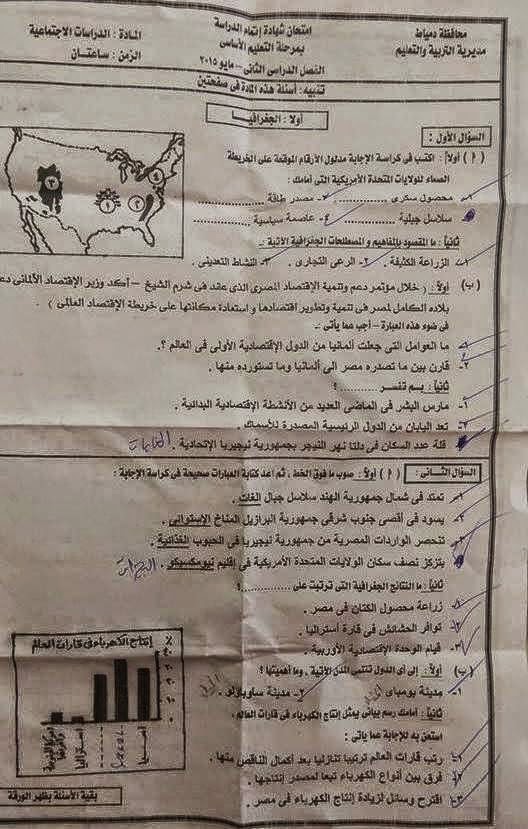 محافظة دمياط
مديرية التربية والتعليم
امتحان شهادة إتمام الدراسة
بمرحلة التعليم الأساسى
الفصل الدراسى الثانى - مايو ٢٠١٥
المادة : الدراسات الاجتماعية
الزمن : ساعتان
تنبيه : أسئلة هذه المادة فى صفحتين
أولا : الجغرافيا
السؤال الأول :
( أ ) أولاً : اكتب فى كراسة الإجابة مدلول الأرقام الموقعة على الخريطة
الصماء للولايات المتحدة الأمريكية التى أمامك :
١- محصول سكرى .......... ٢- مصدر طاقة ..........
سلاسل جبلية .......... ٤- عاصمة سياسية ..........
ثانياً : ما المقصود بالمفاهيم و المصطلحات الجغرافية الآتية :-
١- الزراعة الكثيفة . ٢- الرعى التجارى . ٣- النشاط التعدينى .
(ب) أولاً : ( خلال مؤتمر دعم وتنمية الإقتصاد المصرى الذى عقد فى شرم الشيخ – أكد وزير الإقتصاد الألمانى دعم
بلاده الكامل لمصر فى تنمية وتطوير اقتصادها و استعادة مكانتها على خريطة الإقتصاد العالمى ) .
فى ضوء هذه العبارة – أجب عما يأتى :-
ما العوامل التى جعلت ألمانيا من الدول الإقتصادية الأولى فى العالم ؟.
٢- قارن بين ما تصدره مصر إلى ألمانيا وما تستورده منها .
ثانياً : بم تفسر .......... ؟
١- مارس البشر فى الماضى العديد من الأنشطة الإقتصادية البدائية .
٢- تعد اليابان من الدول الرئيسية المصدرة للأسماك .
قلة عدد السكان فى دلتا نهر النيجر بجمهورية نيجيريا الإتحادية .
السؤال الثانى : ( أ ) أولاً : صوب ما فوق الخط ، ثم أعد كتابة العبارات صحيحة فى كراسة الإجابة :
١- تمتد فى شمال جمهورية الهند سلاسل جبال الغات .
٢- يسود فى أقصى جنوب شرقى جمهورية البرازيل المناخ الإستوائى .
٣- تنحصر الواردات المصرية من جمهورية نيجيريا فى الحبوب الغذائية .
يتركز نصف سكان الولايات المتحدة الأمريكية فى إقليم نيومكسيكو .
ثانياً : ما النتائج الجغرافية التى ترتبت على .......... ؟
١- زراعة محصول الكتان فى مصر .
٢- توافر الحشائش فى قارة أستراليا .
٣- قيام الوحدة الإقتصادية الأوربية .
(ب) أولاً : إلى أى الدول تنتمى المدن الآتية ، وما أهميتها ؟
١- مدينة بومباى . ٢- مدينة ساوباولو .
ثانياً : أمامك رسم بيانى يمثل إنتاج الكهرباء فى قارات العالم .
استعن به للإجابة عما يأتى :
١- رتب قارات العالم ترتيبا تنازليا بعد أكمال الناقص منها .
٢- فرق بين أنواع الكهرباء تبعا لمصدر إنتاجها .
٣- اقترح وسائل لزيادة إنتاج الكهرباء فى مصر .
إنتاج الكهرباء فى قارات العالم
بقية الأسئلة بظهر الورقة